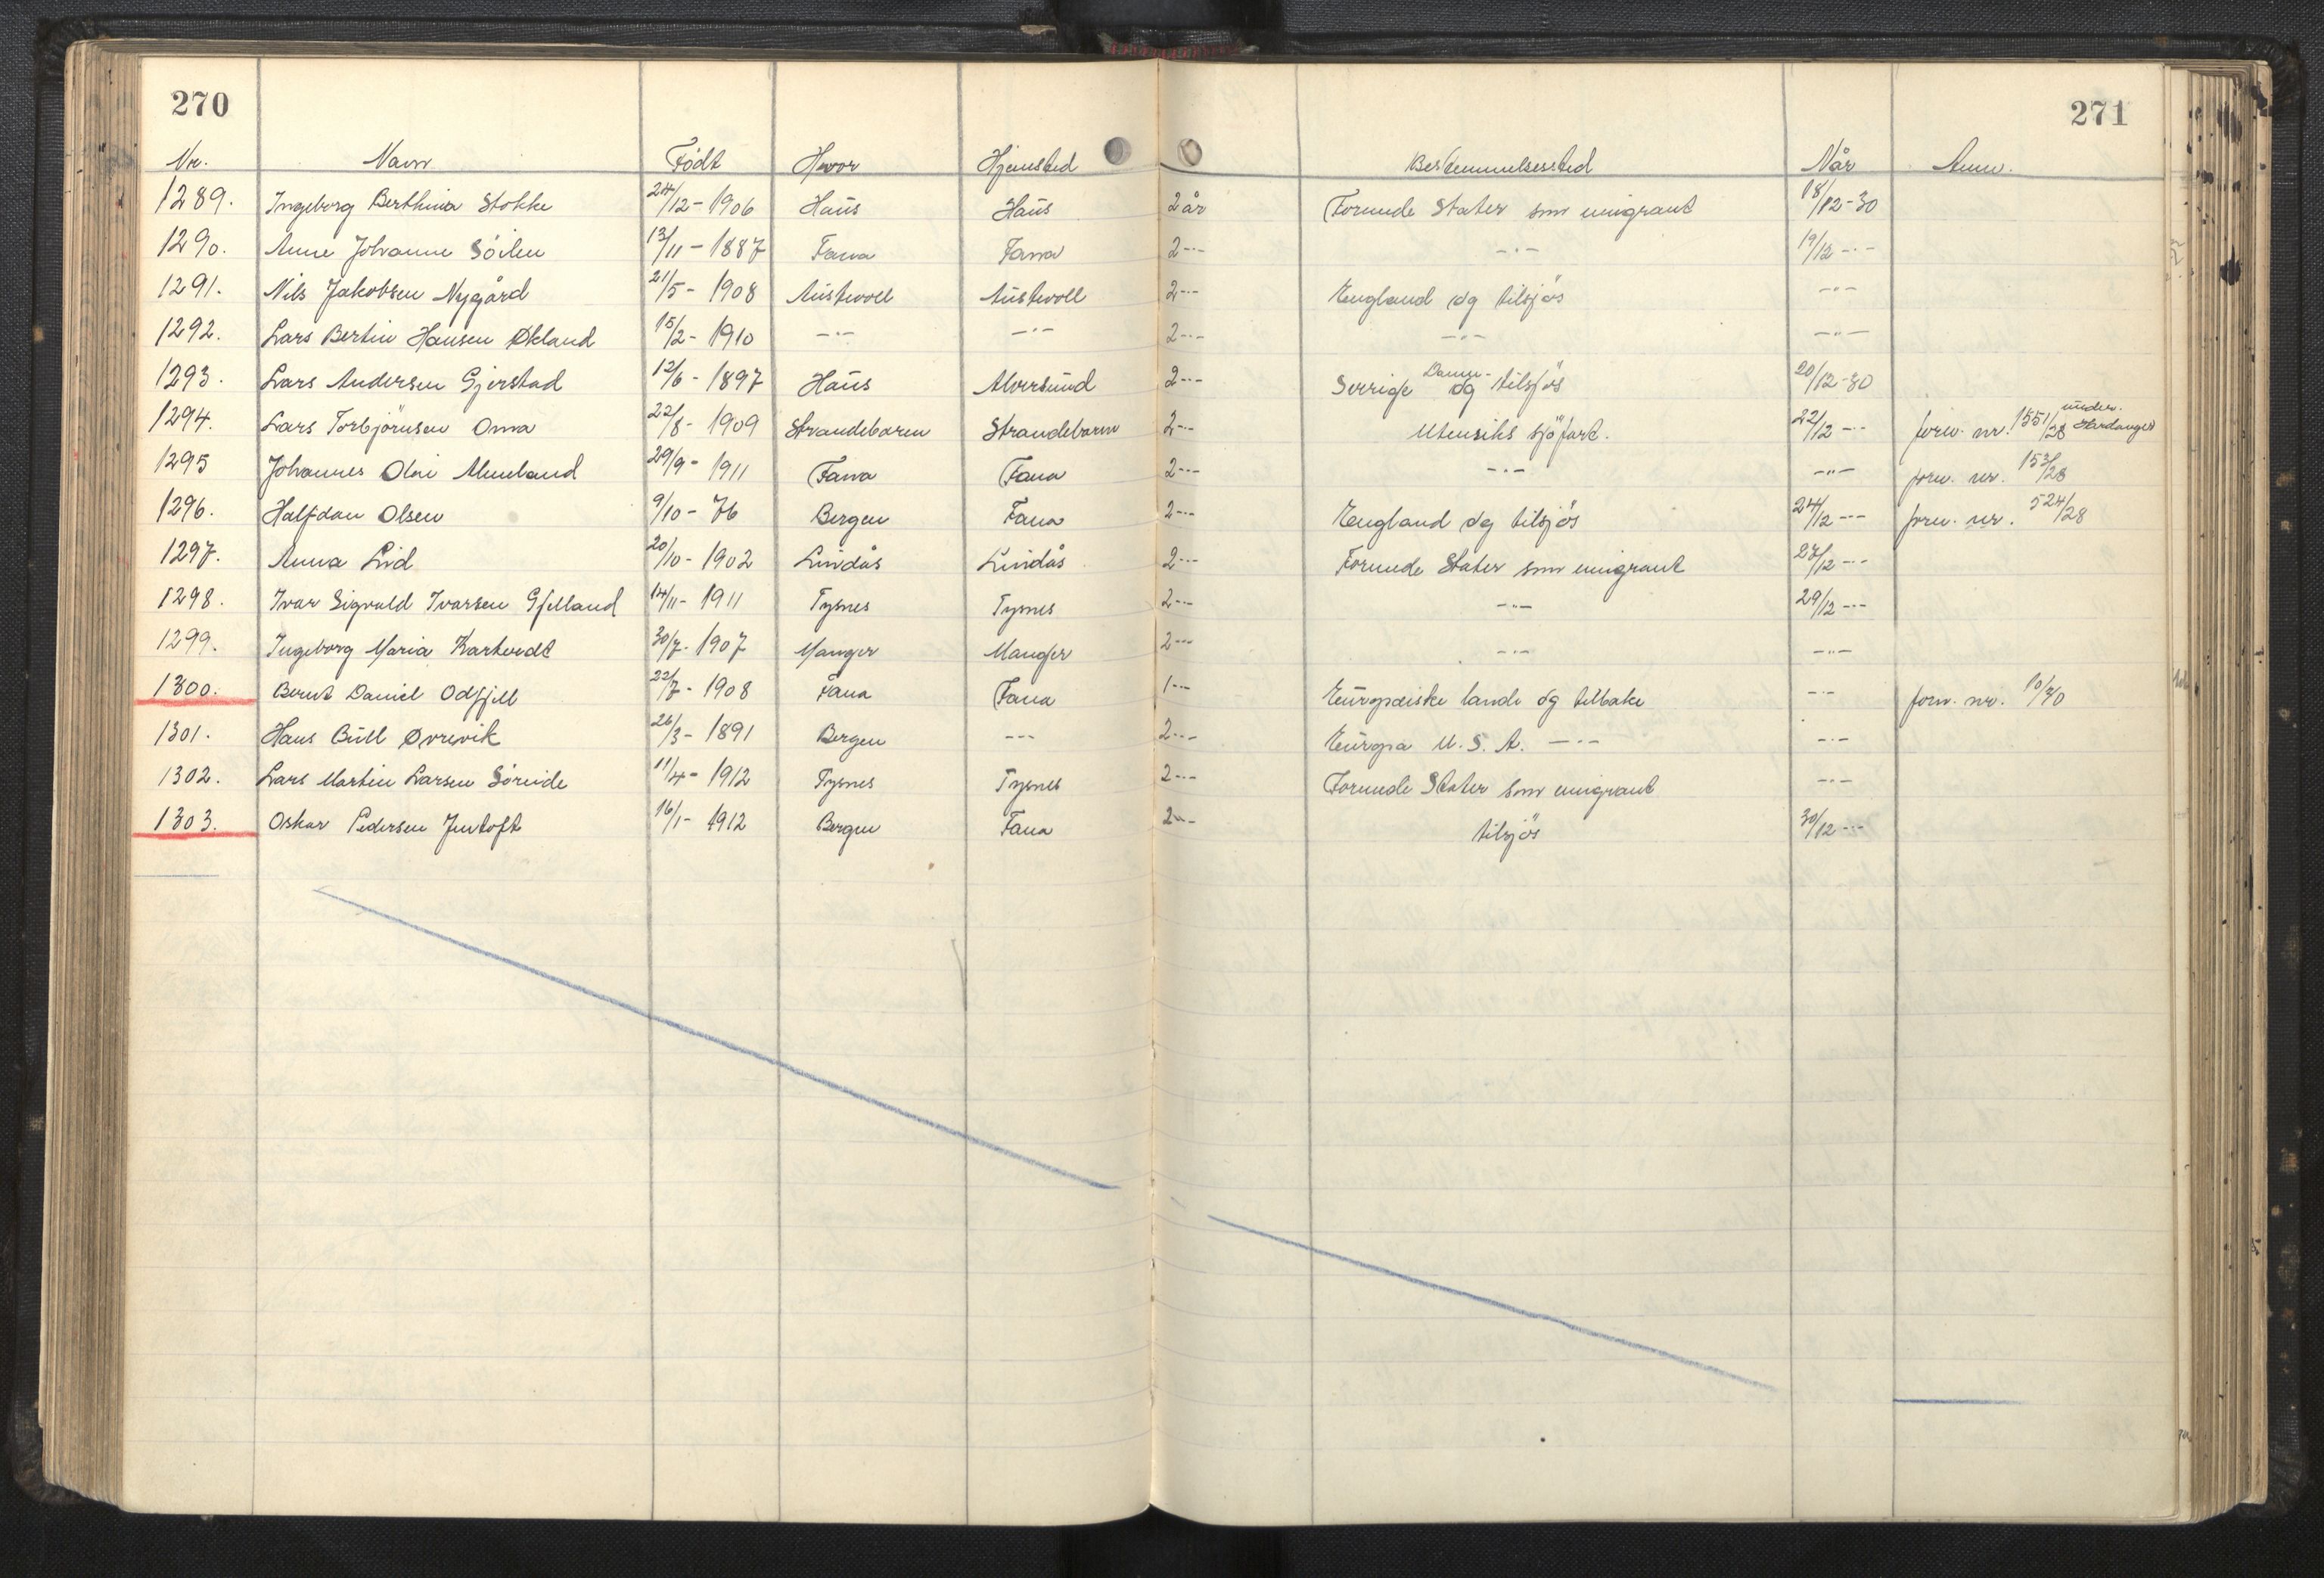 270
271
Nr. Navn Født Hvor Hjemsted Bestemmelsessted Når Anm.
1289. Ingeborg Berthina Stokke 24/12-1906 Haus Haus 2 år Forenede Stater som emigrant 18/12-30
1290. Anne Johanne Söilen 13/11-1887 Fana Fana 2 -"- -"- 19/12 -"-
1291. Nils Jakobsen Nygård 21/5-1908 Austevoll Austevoll 2 -"- England og tilsjös -"-
1292. Lars Bertin Hansen Økland 15/2-1910 -"- -"- 2 -"- -"- -"-
1293. Lars Andersen Gjerstad 12/6-1897 Haus Alversund 2 -"- Sverige Danm- og tilsjös 20/12-30
1294. Lars Torbjörnsen Oma 22/8-1909 Strandebarm Strandebarm 2 -"- Utenriks sjöfart. 22/12 -"- forn. nr. 1551/28 under. Hardanger
1295 Johannes Olai 29/9-1911 Fana Fana 2 -"- -"- -"- forn. nr. 153/28
1296. Halfdan Olsen 9/10-76 Bergen Fana 2 -"- England og tilsjös 24/12 -"- forn. nr. 524/28
1297. Anna Lid 20/10-1902 Lindås Lindås 2 -"- Forenede Stater som emigrant 27/12 -"-
1298. Ivar Sigvald Ivarsen Gjelland 14/11-1911 Tysnes Tysnes 2 -"- -"- 29/12 -"-
1299. Ingeborg Maria Kartvedt 30/7-1907 Manger Manger 2 -"- -"- -"-
1300. Bernt Daniel Odfjell 22/7-1908 Fana Fana 1 -"- Europæiske lande og tilbake -"- forn. nr. 10/30
1301. Hans Bull Øvrevik 26/3-1891 Bergen -"- 2 -"- Europa U.S.A. -"- -"-
1302. Lars Martin Larsen Söreide 11/4-1912 Tysnes Tysnes 2 -"- Forenede Stater som emigrant -"-
1303. Oskar Pedersen Juvtoft 16/1-1912 Bergen Fana 2 -"- tilsjös 30/12 -"-